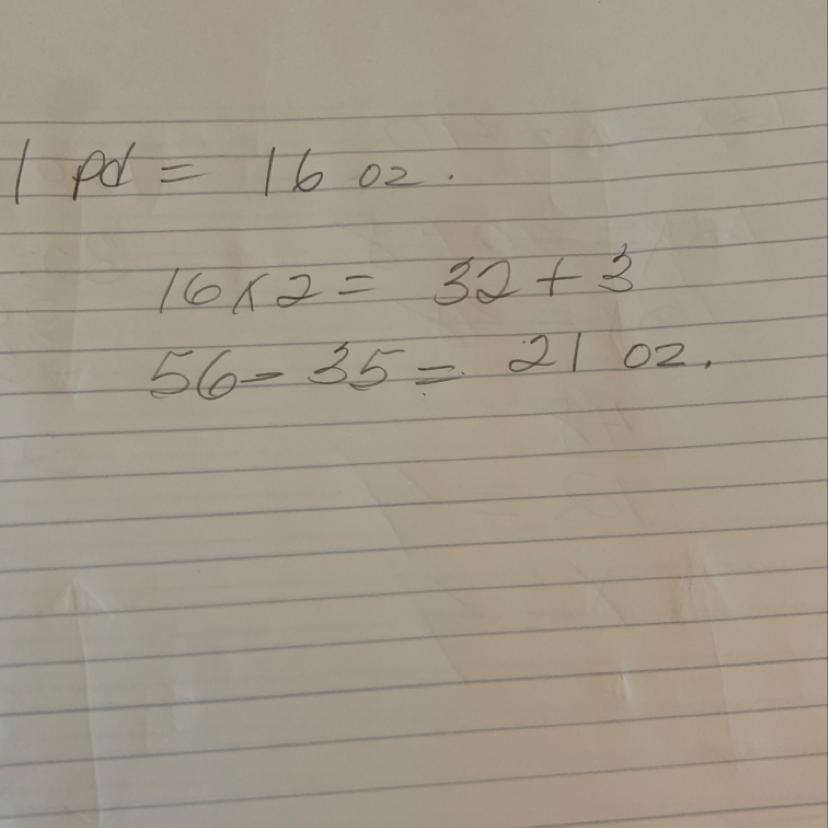 1 pd = 16 oz.
16 x 2 = 32 + 3
56 - 35 = 21 oz.